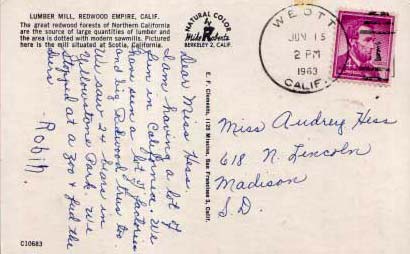 LUMBER MILL, REDWOOD EMPIRE, CALIF.
The great redwood forests of Northern California
are the source of large quantities of lumber and
the area is dotted with modern sawmills. Pictured
here is the mill situated at Scotia, California.
NATURAL COLOR
Mike Roberts
BERKELEY 2, CALIF.
E. F. Clements, 1125 Mission, San Francisco 3, Calif.
C10683
Dear Miss Hess,
I am having a lot of
fun in California. We
have seen a lot of factories
and big Redwood trees too.
We saw 24 bears in
Yellowstone Park. We
stopped at a zoo & fed the
deer.
- Robin.
WEOTT
JUN 15
2 PM
1963
CALIF.
Miss Audrey Hess
618 N. Lincoln
Madison
S.D.